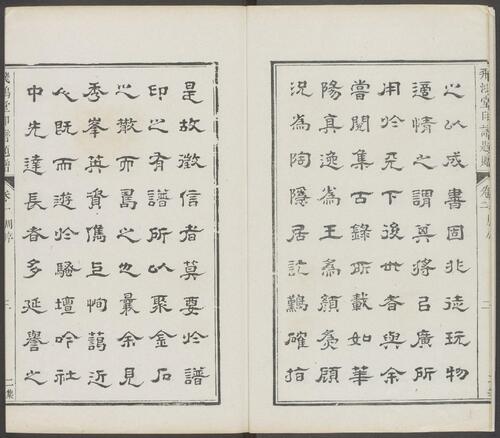 之以成書固非徒玩物
適情之謂其將以廣所
用於天下後世者與余
嘗閱集古錄所載如華
陽真逸為王為顏為顧
況為陶隱居訖難確指
二
是故徵信者莫要於譜
印之有譜所以聚金石
之散而寓之也曩余見
秀峯英資儁上恂藹近
人既而遊於騷壇吟社
中先達長者多延譽之
三
二集